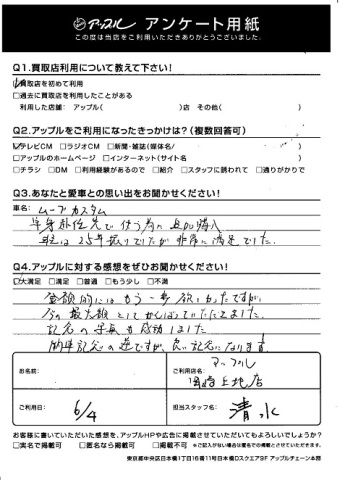 アップル アンケート用紙
この度は当店をご利用いただきありがとうございました。
Q1.買取店利用について教えて下さい！
☑買取店を初めて利用
□過去に買取店を利用したことがある
利用した店舗: アップル( )店 その他( )
Q2.アップルをご利用になったきっかけは？(複数回答可)
☑テレビCM □ラジオCM □新聞・雑誌(媒体名/ )
□アップルのホームページ □インターネット(サイト名 )
□チラシ □DM □利用経験があるので □紹介 □スタッフに誘われて □通りがかりで
Q3.あなたと愛車との思い出をお聞かせください！
車名: ムーブカスタム
単身赴任先で使う為の 購入
は25年振りでしたが非常に満足でした.
Q4.アップルに対する感想をぜひお聞かせください！
☑大満足 □満足 □普通 □もう少し □不満
金額的にはもう一歩欲しかったですが、
今の最大額としてがんばっていただきました.
記念の 感動しました
記念の ですが、良い記念になります
お名前:
ご利用店名:
アップル
店
ご利用日:
6/4
担当スタッフ名:
清水
お客様に書いていただいた感想を、アップルHPや広告に掲載させていただいてもよろしいでしょうか？
□実名で掲載可 □匿名なら掲載可 □掲載不可 ※ご記入がない場合は匿名での掲載とさせていただきます。
東京都中央区日本橋1丁目16番11号日本橋Dスクエア9F アップルチェーン本部